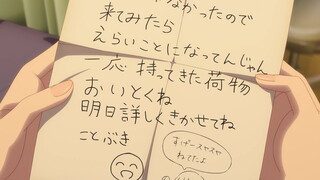 なかったので
来てみたら
えらいことになってんじゃん
一応 持ってきた荷物
おいとくね
明日詳しくきかせてね
ことぶき
すげースヤスヤ
ねてたよ